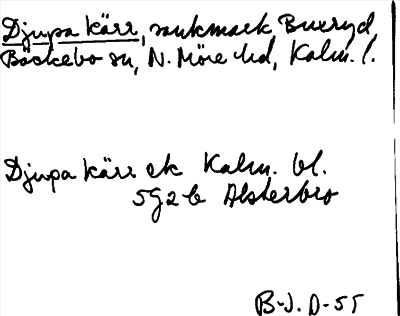 Djupa kärr, sankmark, Buxryd,
Bäckebo sn, N. Möre hd, Kalm. l.
Djupa kärr ek Kalm. bl.
5G2b Alsterbro
B-J. D-55